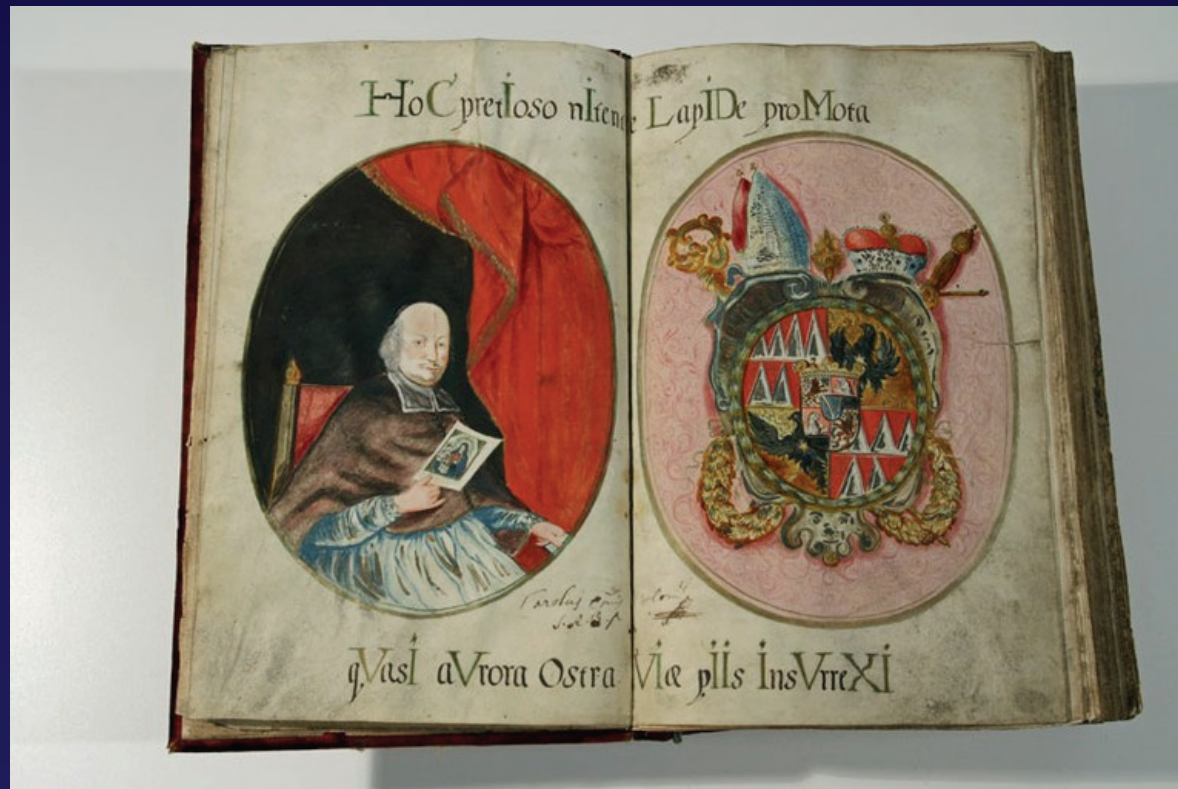 HoC pretIoso nIten e LapIDe proMota
Carolus Ep͠us olomu
S. R. I. P.
qVasI aVrora Ostra VIæ pIIs InsVrreXI